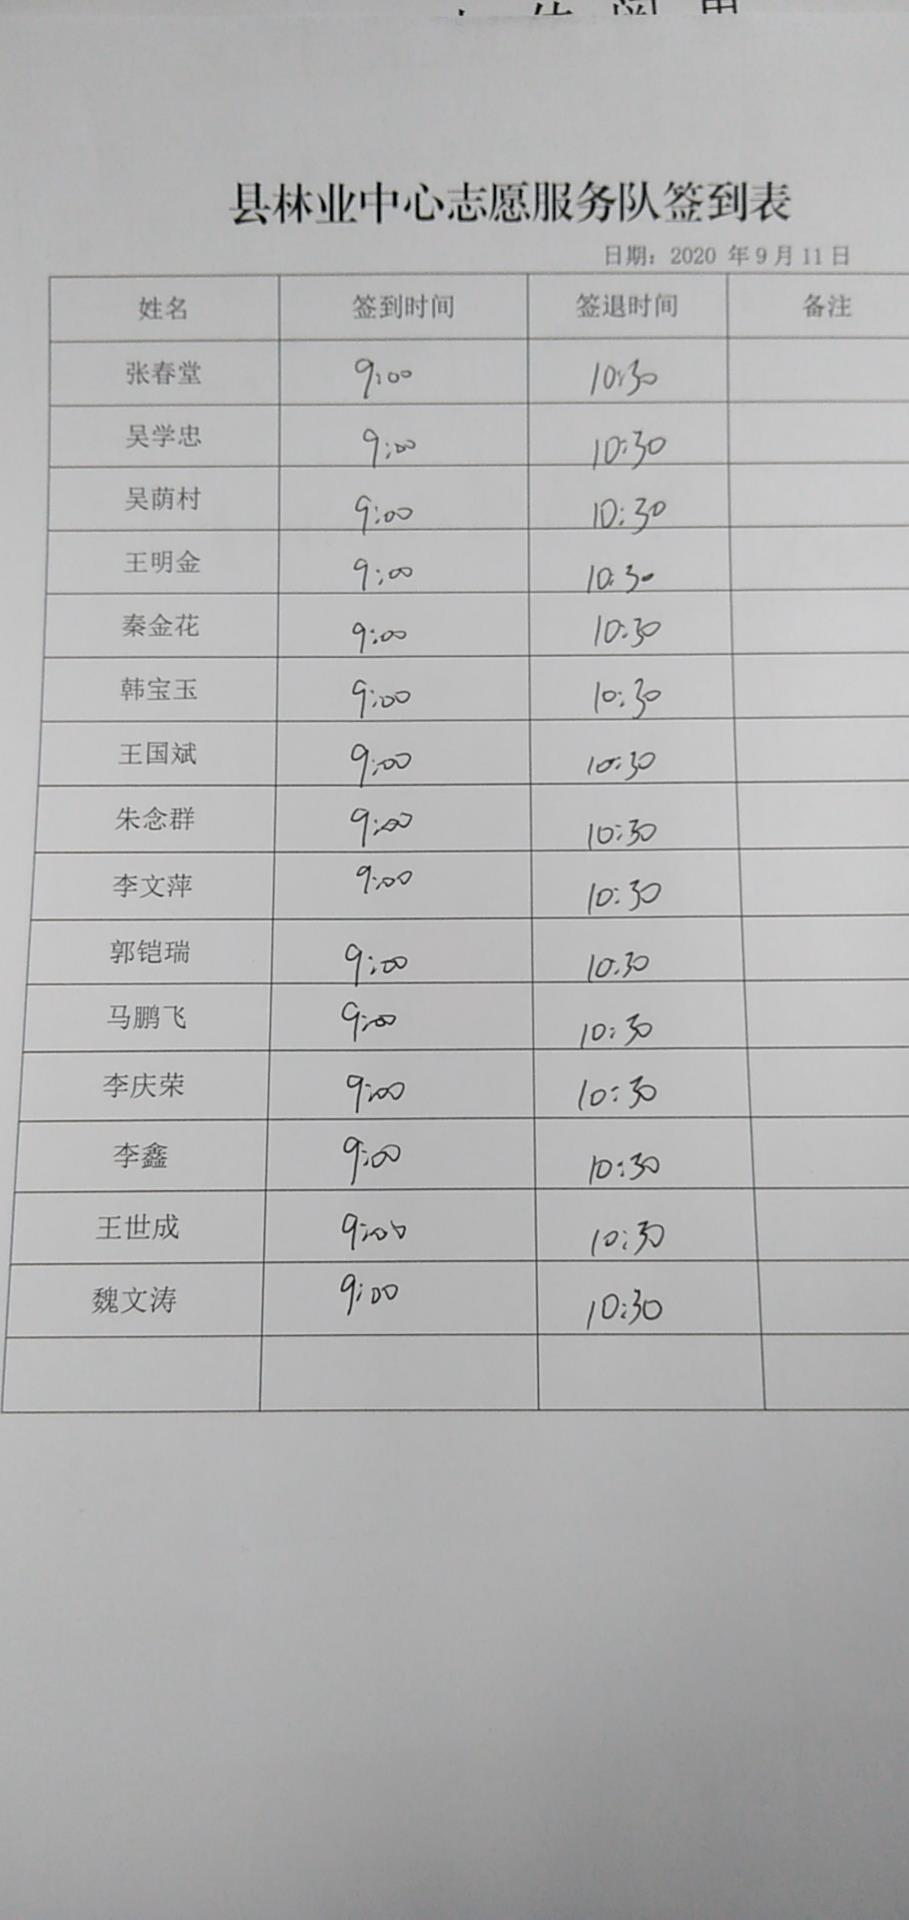 县林业中心志愿服务队签到表
日期：2020 年9月11日
姓名 签到时间 签退时间 备注
张春堂 9:00 10:30
吴学忠 9:00 10:30
吴荫村 9:00 10:30
王明金 9:00 10:30
秦金花 9:00 10:30
韩宝玉 9:00 10:30
王国斌 9:00 10:30
朱念群 9:00 10:30
李文萍 9:00 10:30
郭铠瑞 9:00 10:30
马鹏飞 9:00 10:30
李庆荣 9:00 10:30
李鑫 9:00 10:30
王世成 9:00 10:30
魏文涛 9:00 10:30